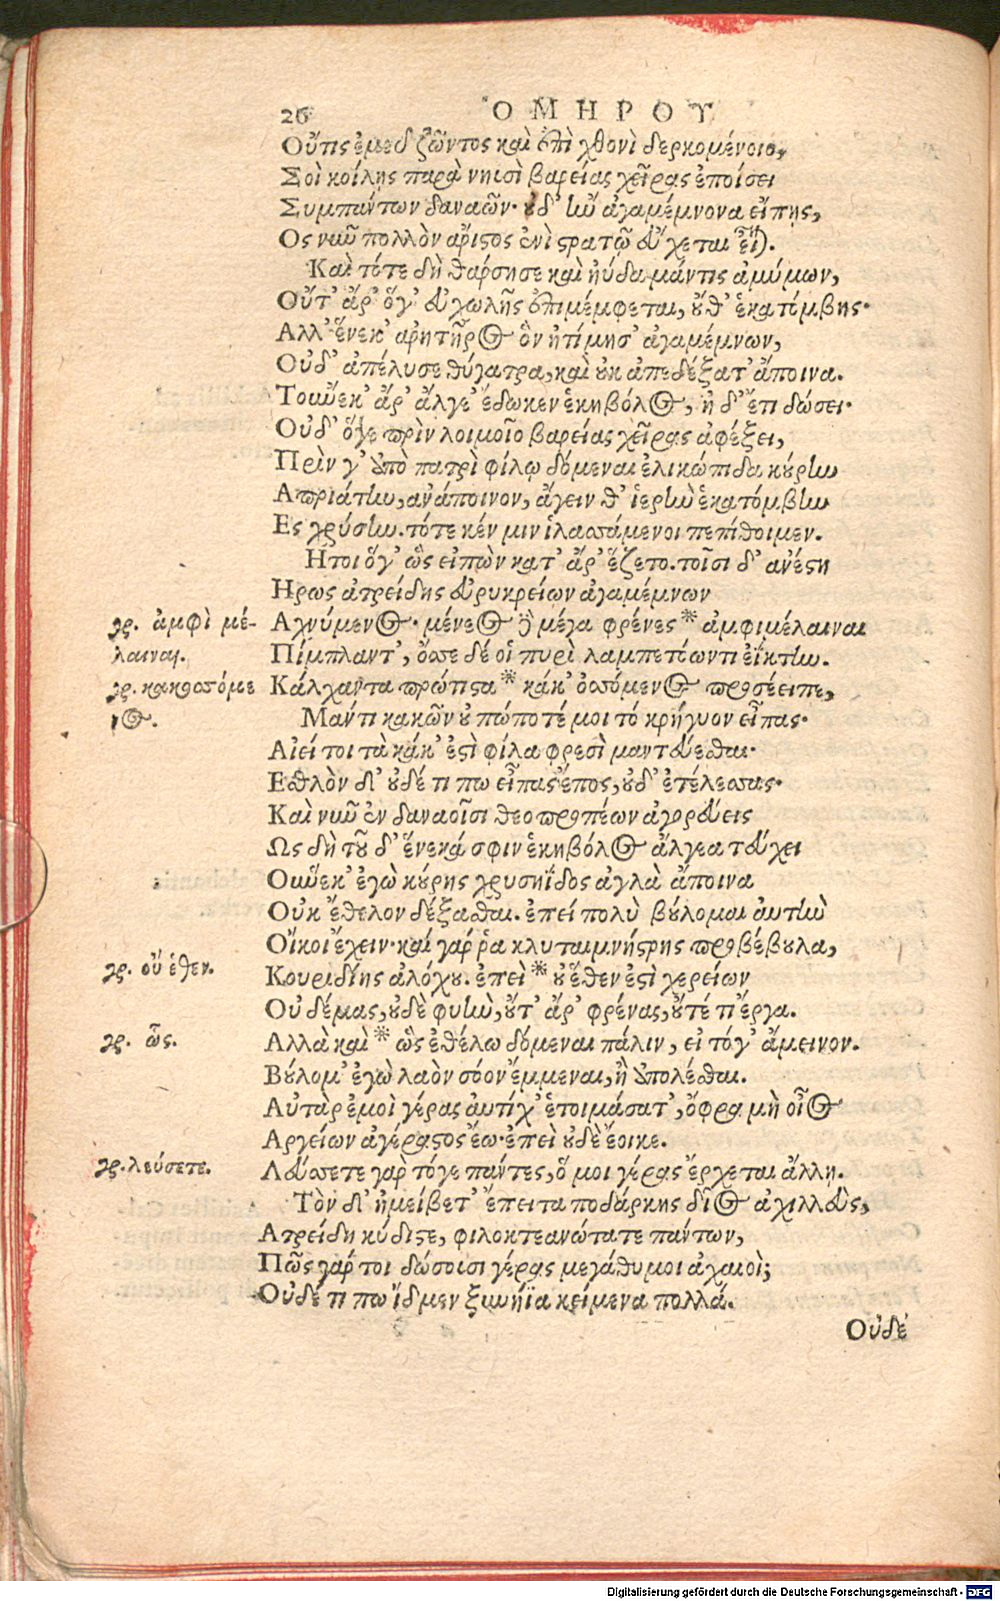 26 ὉΜΗΡΟΥ
Οὔτις ἐμεῦ ζῶντος καὶ ἐπὶ χθονὶ δερκομένοιο,
Σοὶ κοίλῃς παρὰ νηυσὶ βαρείας χεῖρας ἐποίσει
Συμπάντων δαναῶν· οὐδ' ἢν ἀγαμέμνονα εἴπῃς,
Ος νῦν πολλὸν ἄριστος ἐνὶ στρατῷ εὔχεται εἶναι.
Καὶ τότε δὴ θάρσησε καὶ ηὔδα μάντις ἀμύμων,
Οὔτ' ἄρ' ὅγ' εὐχωλῆς ἐπιμέμφεται, οὔθ' ἑκατόμβης·
Αλλ' ἕνεκ' ἀρητῆρος ὃν ἠτίμησ' ἀγαμέμνων,
Οὐδ' ἀπέλυσε θύγατρα, καὶ οὐκ ἀπεδέξατ' ἄποινα.
Τοὔνεκ' ἄρ' ἄλγε' ἔδωκεν ἑκηβόλος, ἠ δ' ἔτι δώσει·
Οὐδ' ὅγε πρὶν λοιμοῖο βαρείας χεῖρας ἀφέξει,
Πρίν γ' ἀπὸ πατρὶ φίλῳ δόμεναι ἑλικώπιδα κούρην
Απριάτην, ἀνάποινον, ἄγειν θ' ἱερὴν ἑκατόμβην
Ες χρύσην. τότε κέν μιν ἱλασσάμενοι πεπίθοιμεν.
Ητοι ὅγ' ὣς εἰπὼν κατ' ἄρ' ἕζετο. τοῖσι δ' ἀνέστη
Ηρως ἀτρείδης εὐρυκρείων ἀγαμέμνων
γρ. ἀμφὶ μέ- Αχνύμενος· μένεος δὲ μέγα φρένες * ἀμφιμέλαιναι
λαιναι. Πίμπλαντ', ὄσσε δέ οἱ πυρὶ λαμπετόωντι ἐΐκτην.
γρ. κακοσσόμε Κάλχαντα πρώτιστα * κάκ' ὀσσόμενος προσέειπε,
νος. Μάντι κακῶν οὐ πώποτέ μοι τό κρήγυον εἶπας·
Αἰεί τοι τὰ κάκ' ἐστὶ φίλα φρεσὶ μαντεύεσθαι·
Εσθλὸν δ' οὐδέ τι πω εἶπας ἔπος, οὐδ' ἐτέλεσσας·
Καὶ νῦν ἐν δαναοῖσι θεοπροπέων ἀγορεύεις
Ως δὴ τοῦ δ' ἕνεκά σφιν ἑκηβόλος ἄλγεα τεύχει
Οὕνεκ' ἐγὼ κούρης χρυσηΐδος ἀγλὰ ἄποινα
Οὐκ ἔθελον δέξασθαι. ἐπεί πολὺ βούλομαι αὐτὴν
Οἴκοι ἔχειν· καί γάρ ῥα κλυταιμνήστρης προβέβουλα,
γρ. οὔ ἑθεν. Κουριδίης ἀλόχου. ἐπεὶ * οὔ ἕθεν ἐστὶ χερείων
Οὐ δέμας, οὐδὲ φυὴν, οὔτ' ἄρ' φρένας, οὔτέ τι ἔργα.
γρ. ὧς. Αλλὰ καὶ * ὣς ἐθέλω δόμεναι πάλιν, εἰ τόγ' ἄμεινον.
Βούλομ' ἐγὼ λαὸν σόον ἔμμεναι, ἢ ἀπολέσθαι.
Αὐτὰρ ἐμοὶ γέρας αὐτίχ' ἑτοιμάσατ', ὄφρα μὴ οἶος
Αργείων ἀγέραστος ἔω· ἐπεὶ οὐδὲ ἔοικε.
γρ. λεύσετε. Λεύσσετε γὰρ τόγε πάντες, ὅ μοι γέρας ἔρχεται ἄλλῃ.
Τὸν δ' ἠμείβετ' ἔπειτα ποδάρκης δῖος ἀχιλλεὺς,
Ατρείδη κύδιστε, φιλοκτεανώτατε πάντων,
Πῶς γάρ τοι δώσουσι γέρας μεγάθυμοι ἀχαιοὶ;
Οὐδέ τι πω ἴδμεν ξυνήϊα κείμενα πολλά.
Οὐδέ
Digitalisierung gefördert durch die Deutsche Forschungsgemeinschaft - DFG